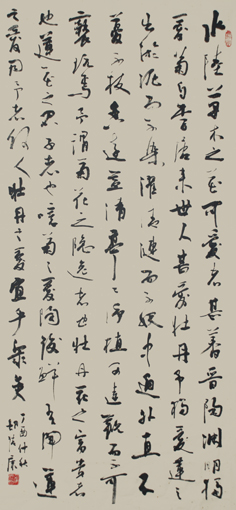 水陸草木之花可愛者甚蕃晉陶淵明獨
愛菊自李唐来世人甚愛牡丹予獨愛蓮之
出淤泥而不染濯清漣而不妖中通外直不
蔓不枝香遠益清亭亭淨植可遠觀而不可
褻玩焉予謂菊花之隱逸者也牡丹花之富貴者
也蓮花之君子者也噫菊之愛陶後鮮有聞蓮
之愛同予者何人牡丹之愛宜乎衆矣
丁酉仲秋